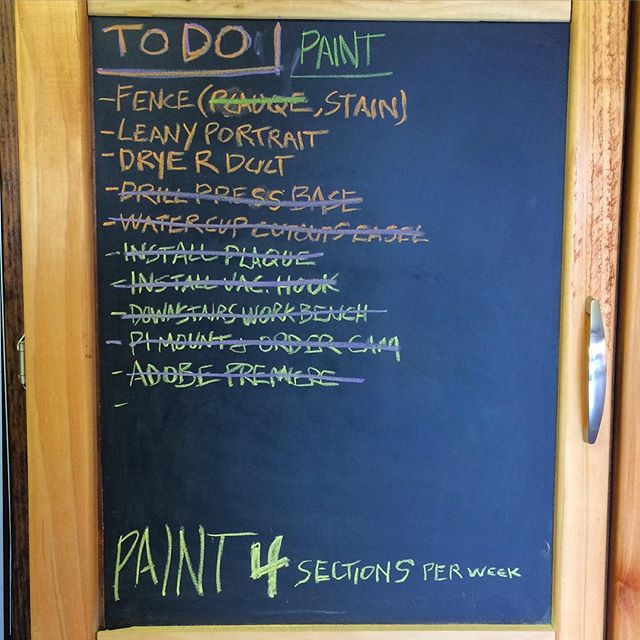 TO DO! PAINT
- FENCE (PLAUQE, STAIN)
- LEANY PORTRAIT
- DRYER DUCT
- DRILL PRESS BASE
- WATER CUP CUTOUTS EASEL
- INSTALL PLAQUE
- INSTALL VAC. HOOK
- DOWNSTAIRS WORKBENCH
- PI MOUNT & ORDER CAM
- ADOBE PREMIERE
-
PAINT 4 SECTIONS PER WEEK